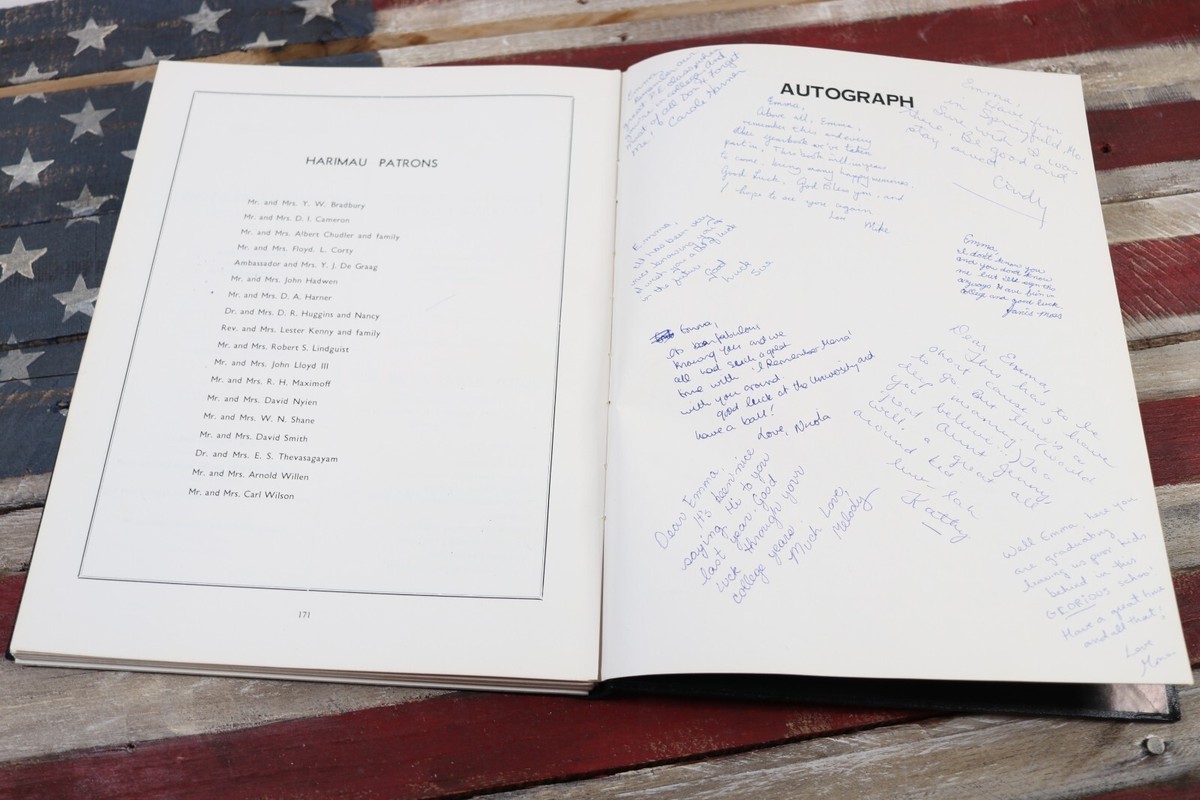 HARIMAU PATRONS
Mr. and Mrs. Y. W. Bradbury
Mr. and Mrs. D. I. Cameron
Mr. and Mrs. Albert Chudler and family
Mr. and Mrs. Floyd. L. Corty
Ambassador and Mrs. Y. J. De Graag
Mr. and Mrs. John Hadwen
Mr. and Mrs. D. A. Harner
Dr. and Mrs. D. R. Huggins and Nancy
Rev. and Mrs. Lester Kenny and family
Mr. and Mrs. Robert S. Lindguist
Mr. and Mrs. John Lloyd III
Mr. and Mrs. R. H. Maximoff
Mr. and Mrs. David Nyien
Mr. and Mrs. W. N. Shane
Mr. and Mrs. David Smith
Dr. and Mrs. E. S. Thevasagayam
Mr. and Mrs. Arnold Willen
Mr. and Mrs. Carl Wilson
171
AUTOGRAPH
Emma,
Remember our
great P.E. class
in college and
most of all Don't Forget
Me! Carole Harner
Emma,
Above all, Emma,
remember this and every
other yearbook we've taken
part in. This book will in years
to come, bring many happy memories.
Good Luck, God Bless you, and
I hope to see you again
Love
Mike
Emma,
Have fun
in Springfield, Mo
Sure wish I was
there. Be good and
stay sweet
Cindy
Emma,
It has been very
nice knowing you.
I wish you a lot of luck
in the future.
Good
Luck
Sue
Emma,
I don't know you
and you don't know
me but I'll sign this
anyways. Have fun in
college and good luck
Janice Moss
Emma,
It's been fabulous
knowing you and we
all had such a great
time with "I Remember Mama"
with you around
good luck at the University and
have a ball!
Love, Nicola
Dear Emma,
short This has to be
cause I have
to go. But there's a
deep meaning (would
you believe?) To a
good Aunt Jenny,
well, a great all
around kid.
luv-lah
Kathy
Dear Emma,
It's been nice
saying Hi to you
last year. Good
luck through your
college years.
Much Love,
Melody
Well Emma, here you
are graduating
leaving us poor kids
behind in this
GLORIOUS school
Have a great time
and all that!
Love